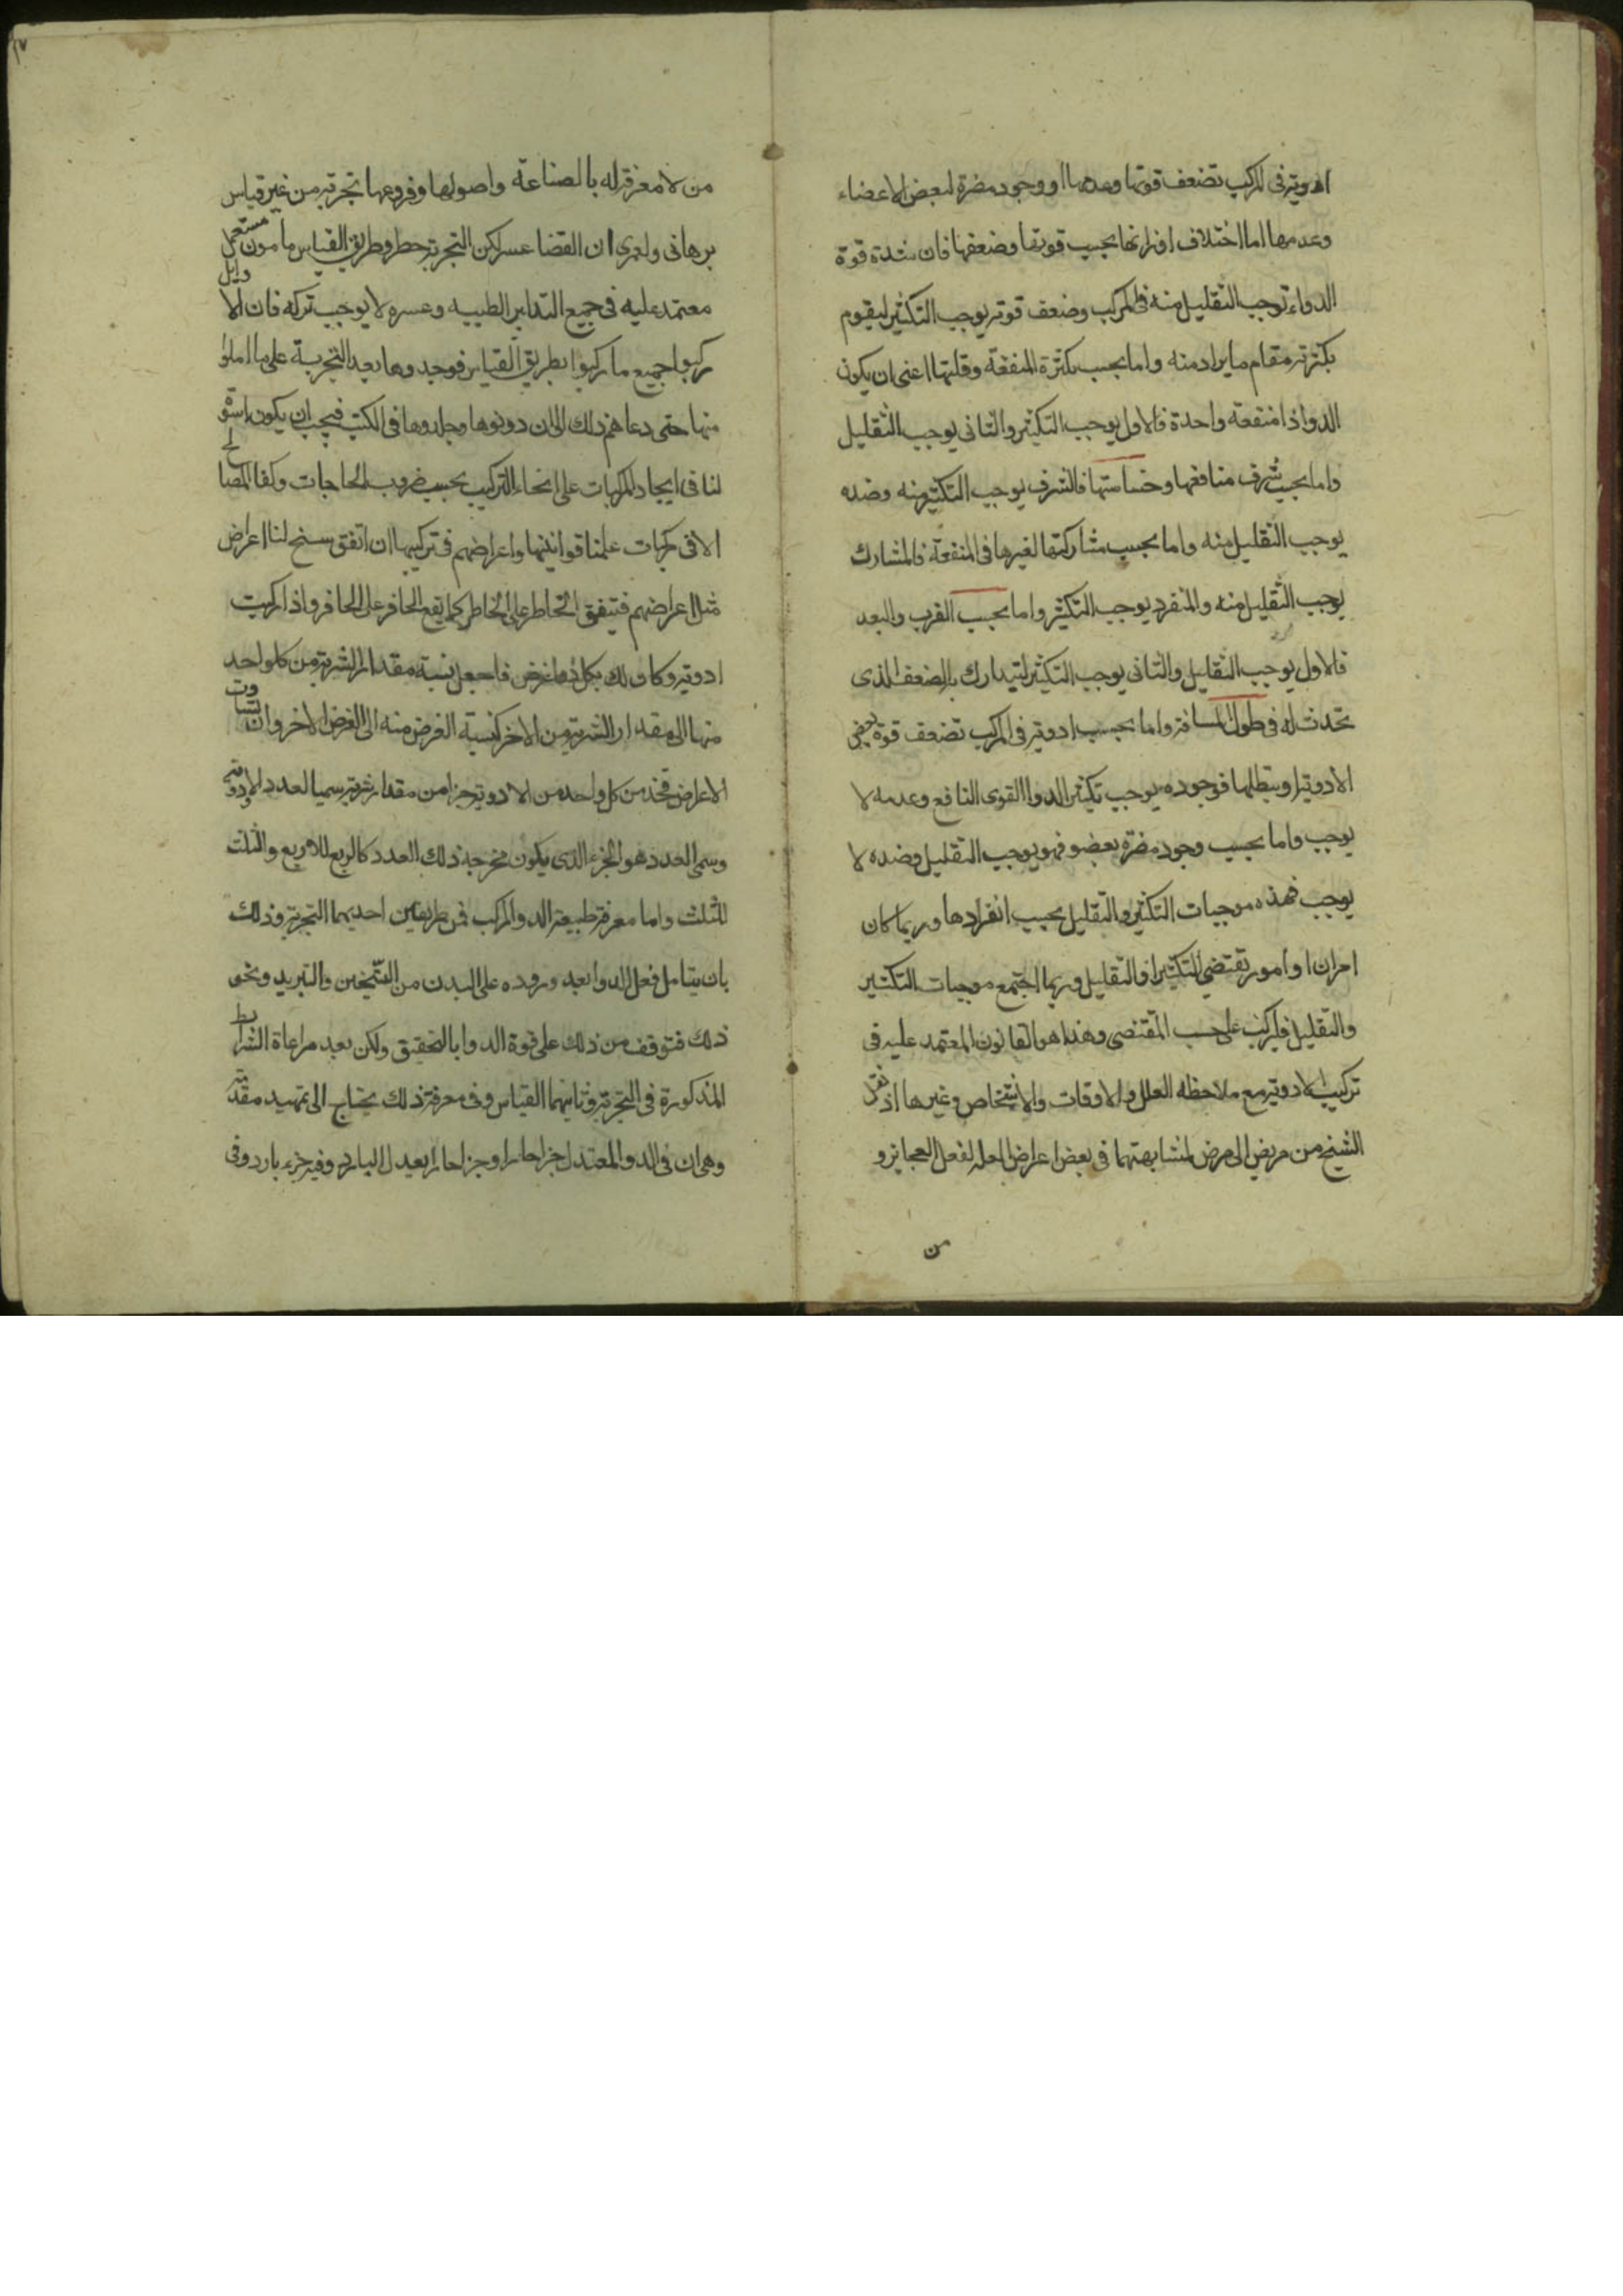 ادوية في المركب تضعف قوتها وعدمها او وجود مضرة لبعض الاعضاء
وعدمها اما اختلاف اوزانها بحسب قوتها وضعفها فان شدة قوة
الدواء توجب التقليل منه في المركب وضعف قوته يوجب التكثير ليقوم
بكثرته مقام ما يراد منه واما بحسب كثرة المنفعة وقلتها اعنى ان يكون
الدوا ذا منفعة واحدة فالاول يوجب التكثير والثانى يوجب التقليل
واما بحسب شرف منافعها وخساستها فالشرف يوجب التكثير منه وضده
يوجب التقليل منه واما بحسب مشاركتها لغيرها في المنفعة فالمشارك
يوجب التقليل منه والمنفرد يوجب التكثير واما بحسب القرب والبعد
فالاول يوجب التقليل والثانى يوجب التكثير لتيدارك بالضعف الذى
تحدث له في طول المسافة واما بحسب ادوية في المركب تضعف قوة بعض
الادوية او يبطلها فوجوده يوجب تكثير الدوا القوى النافع وعدمه لا
يوجب واما بحسب وجود مضرة بعضو فهو يوجب التقليل وضده لا
يوجب فهذه موجبات التكثير والتقليل بحسب انفرادها وربما كان
امران او امور تقتضى التكثير او التقليل وربما اجتمع موجبات التكثير
والتقليل فليركب على حسب المقتضى وهذا هو القانون المعتمد عليه في
تركيب الادوية مع ملاحظة العلل والاوقات والاشخاص وغيرها اذ نقل
الشيخ من مريض الى مرض لمشابهتهما في بعض اعراض العلة لفعل العجايز و
من
من لا معرفة له بالصناعة واصولها وفروعها تجربة من غير قياس
برهانى ولعمرى ان القضا عسر لكن التجربة خطر وطريق القياس مامون مستعمل
معتمد عليه في جميع التدابير الطبيه وعسره لا يوجب تركه فان الاوايل
ركبوا جميع ما ركبوا بطريق القياس فوجدوها بعد التجربة على ما املوا
منها حتى دعاهم ذلك الى ان دونوها وخلدوها في الكتب فيجب ان يكون اسوة
لنا في ايجاد المركبات على انحاء التركيب بحسب ضروب الحاجات وكفا المصالح
الا في مركبات علمنا قوانينها واعراضهم في تركيبها ان اتفق سنح لنا اعراض
مثل اعراضهم فيتفق الخاطر على الخاطر كما يقع الحافر على الحافر واذا ركبت
ادوية وكا ولك بكل غرض فاجعل نسبة مقدار الشربة من كل واحد
منها الى مقدار الشربة من الاخر كنسبة الغرض منه الى الغرض الاخر وان تساوت
الاعراض فخذ من كل واحد من الادوية جزا من مقدار شربته سميا لعدد الادوية
وسمى العدد هو الجزء الذى يكون مخرجه ذلك العدد كالربع للاربع والثلث
للثلث واما معرفة طبيعة الدوا المركب فمن طريقين احديهما التجربة وذلك
بان يتامل فعل الدوا بعد وروده على البدن من التسخين والتبريد ونحو
ذلك فتوقف من ذلك على قوة الدوا بالتحقيق ولكن بعد مراعاة الشرايط
المذكورة في التجربة وثانيهما القياس وفى معرفة ذلك يحتاج الى تمهيد مقدمة
وهى ان في الدوا المعتدل جزا حارا وجزا حارا بعدل البارد وفيه جزء بارد وفى